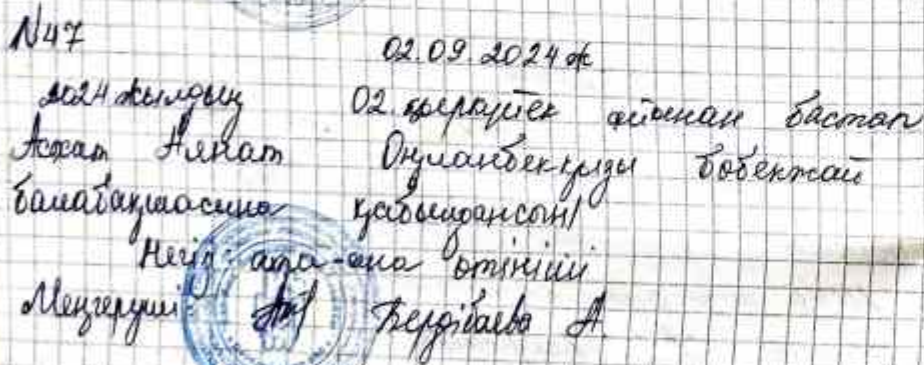 N47
02.09.2024ж
2024 жылдың 02. қыркүйек айынан бастап
Асхат Аянат бөбекжай
балабақшасына қабылдансын
Негіз: ата-ана өтініші
Меңгеруші: Бердібаева А